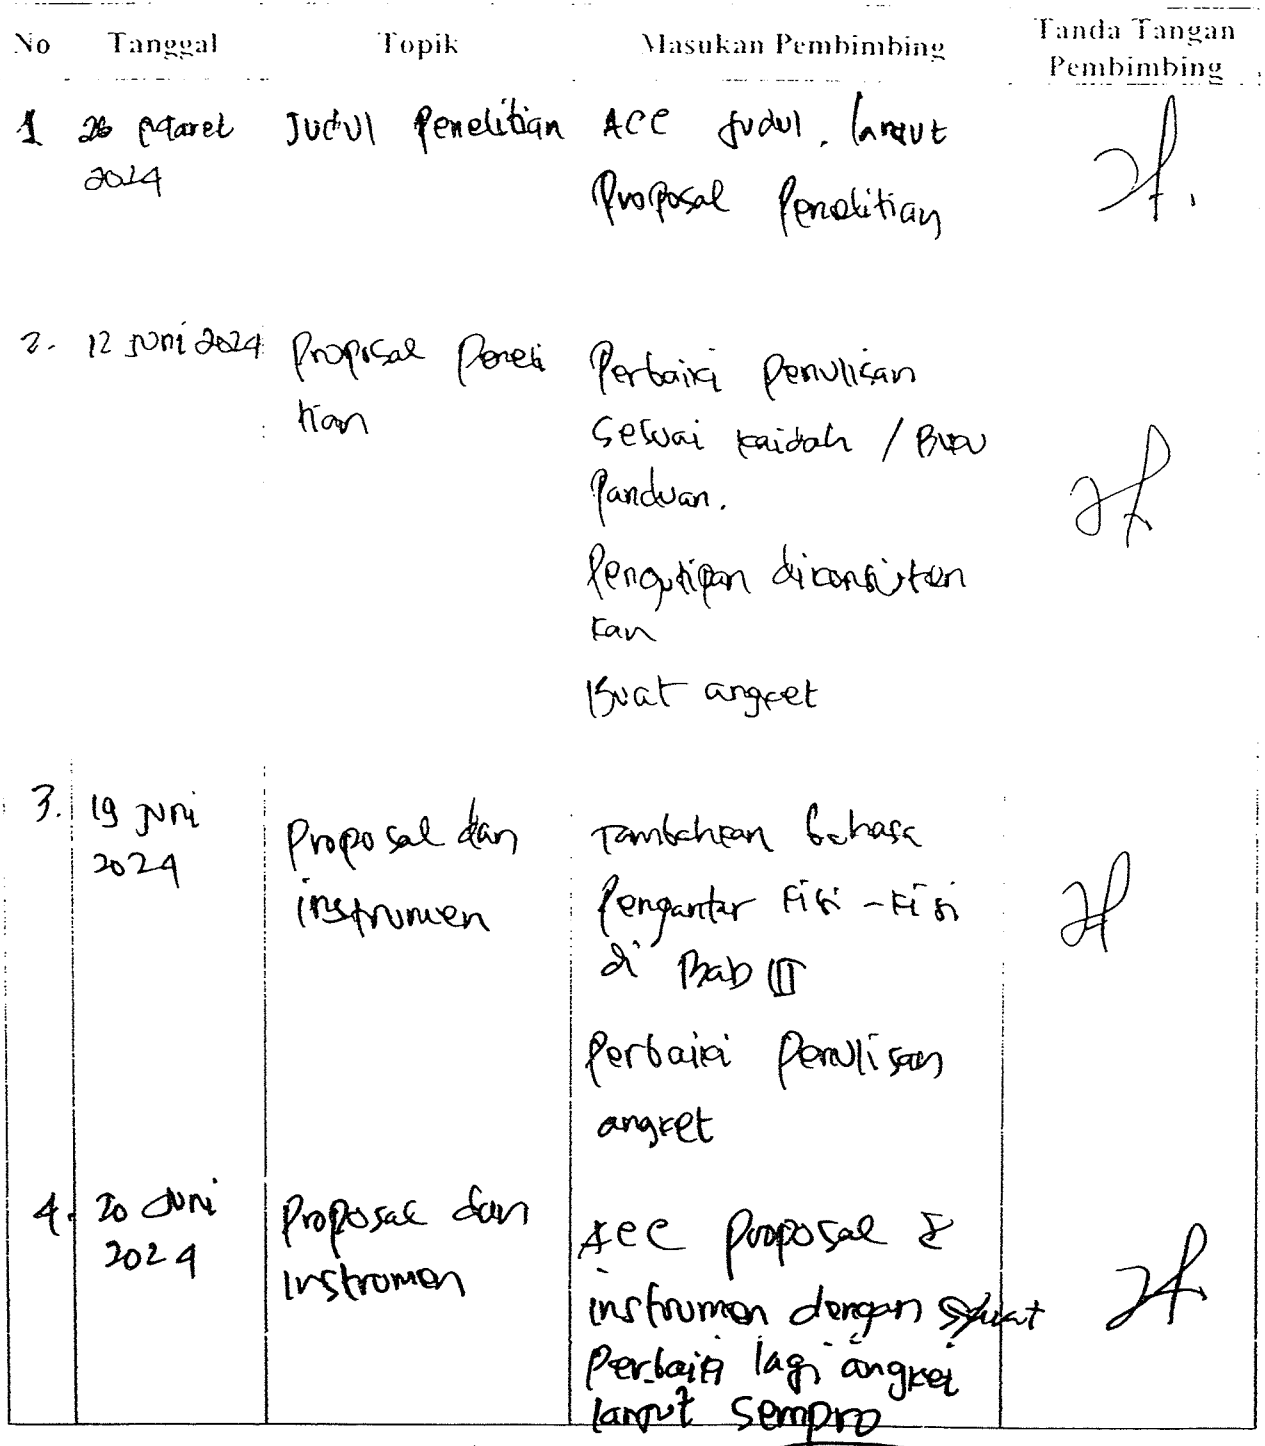 No Tanggal Topik Masukan Pembimbing Tanda Tangan
Pembimbing
1 26 Maret Judul Penelitian ACC Judul, lanjut
2024
Proposal Penelitian
2. 12 Juni 2024 Proposal Peneli
tian
Perbaiki Penulisan
Sesuai kaidah / Buku
Panduan.
Pengutipan dikonsisten
kan
Buat angket
3. 19 Juni
2024
Proposal dan
instrumen
Tambahkan bahasa
Pengantar Kisi-Kisi
di Bab III
Perbaiki Penulisan
angket
4. 20 Juni
2024
Proposal dan
Instrumen
ACC Proposal &
instrumen dengan syarat
Perbaiki lagi angket
lanjut Sempro